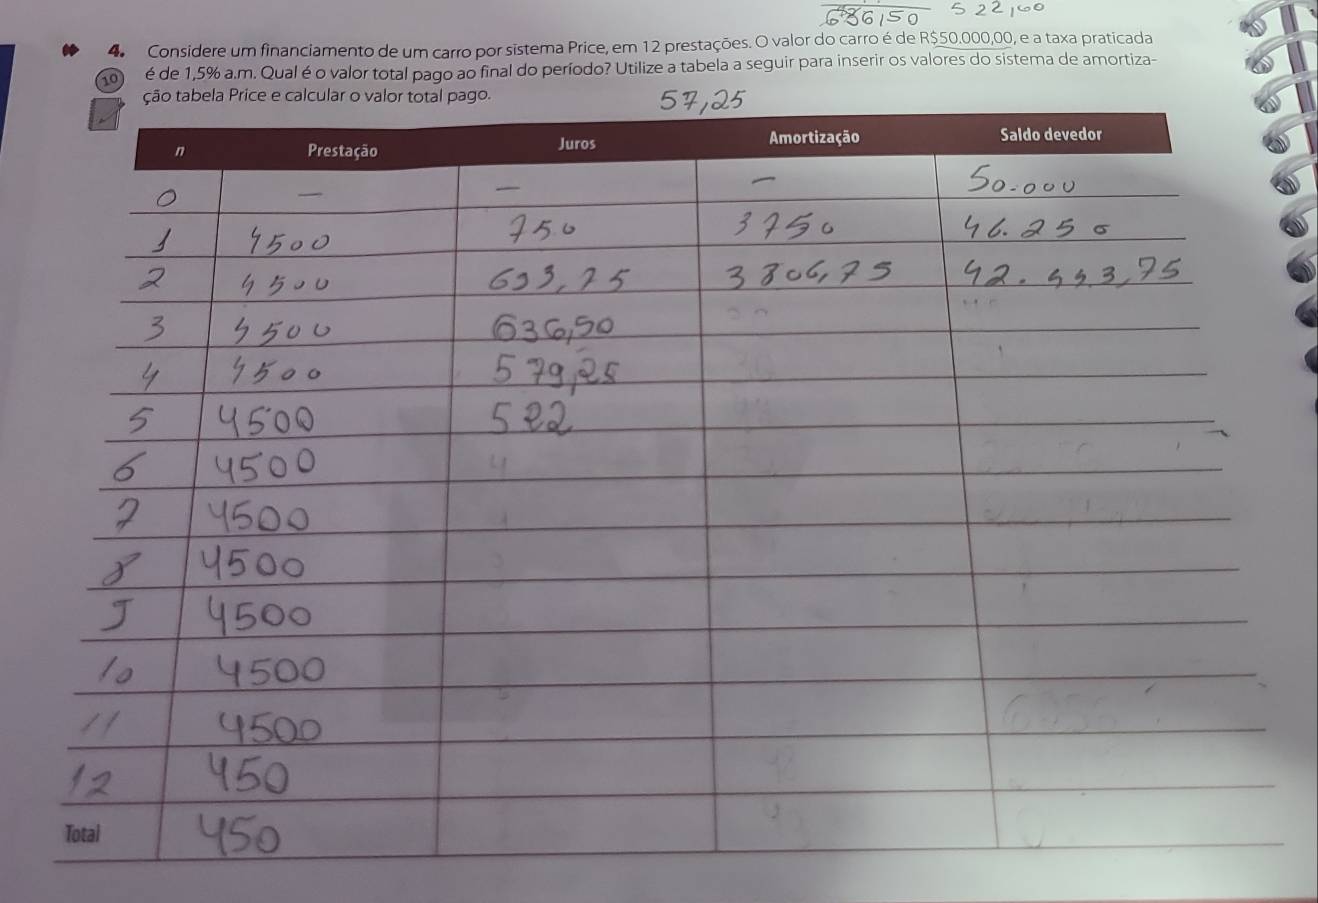 636,50 522,00
4. Considere um financiamento de um carro por sistema Price, em 12 prestações. O valor do carro é de R$50.000,00, e a taxa praticada
10 é de 1,5% a.m. Qual é o valor total pago ao final do período? Utilize a tabela a seguir para inserir os valores do sistema de amortiza-
ção tabela Price e calcular o valor total pago.
57,25
n Prestação Juros Amortização Saldo devedor
0 — — — 50.000
1 4500 750 3750 46.250
2 4500 693,75 3806,75 42.443,75
3 4500 636,50
4 4500 579,25
5 4500 522
6 4500
7 4500
8 4500
9 4500
10 4500
11 4500
12 450
Total 450